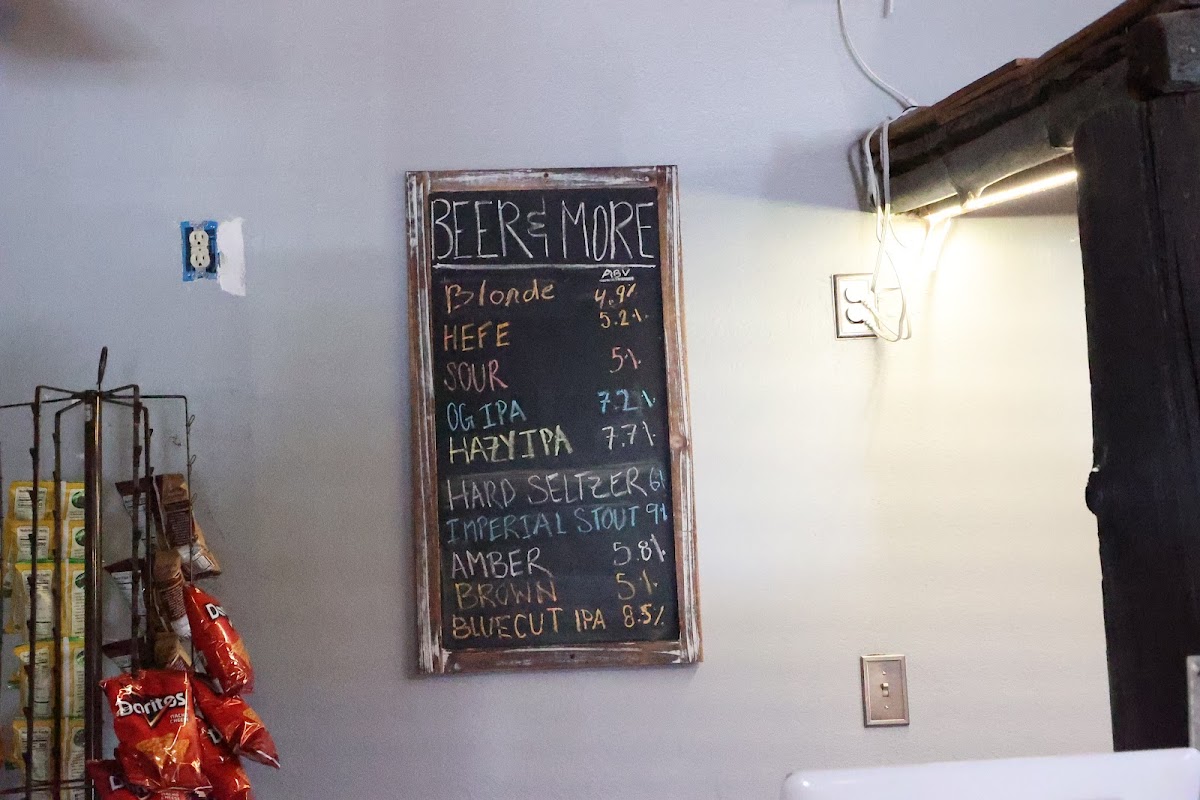 BEER & MORE
ABV
Blonde 4.9%
HEFE 5.2%
SOUR 5%
OG IPA 7.2%
HAZY IPA 7.7%
HARD SELTZER 6%
IMPERIAL STOUT 9%
AMBER 5.8%
BROWN 5%
BLUECUT IPA 8.5%
Doritos
NACHO CHEESE